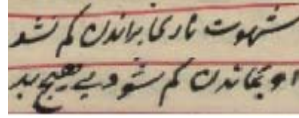 شهوت ناری براندن کم نشد
او بماندن کم شود بی هیچ بد